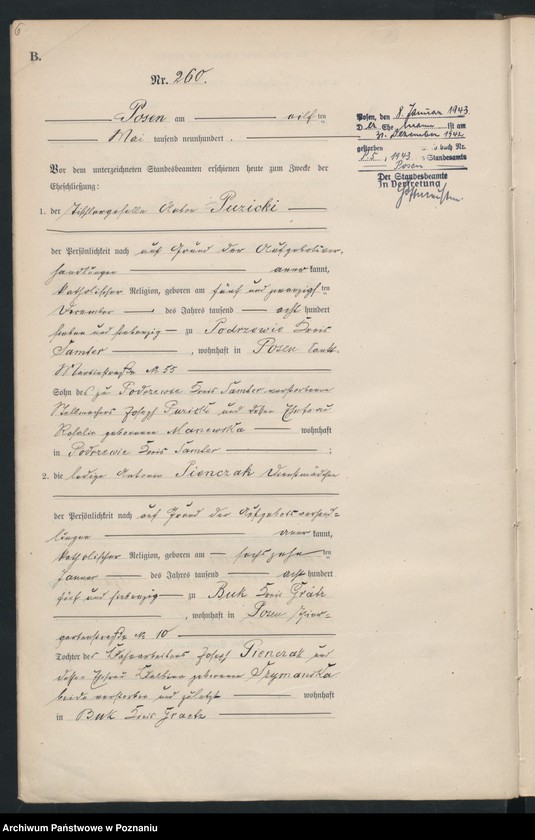 6
B.
Nr. 260.
Posen am eilf ten
Mai tausend neunhundert .
Vor dem unterzeichneten Standesbeamten erschienen heute zum Zwecke der
Eheschließung:
1. der Tischlergeselle Anton Puzicki
der Persönlichkeit nach auf Grund der Aufgebotsver-
handlungen aner kannt,
katholischer Religion, geboren am fünf und zwanzigsten
Dezember des Jahres tausend acht hundert
sieben und siebenzig zu Podrzewie Kreis
Samter , wohnhaft in Posen Sankt
Martinstraße No 55
Sohn des zu Podrzewie Kreis Samter verstorbenen
Stellmachers Joseph Puzicki und dessen Ehefrau
Rosalie geborenen wohnhaft
in Podrzewie Kreis Samter ;
2. die ledige Antonie Pienczak Dienstmädchen
der Persönlichkeit nach auf Grund der Aufgebotsverhand=
lungen aner kannt,
katholischer Religion, geboren am sechszehn ten
Januar des Jahres tausend acht hundert
fünf und siebenzig zu Buk Kreis Grätz
, wohnhaft in Posen Thier-
gartenstraße No 10
Tochter des Joseph Pienczak und
dessen Ehefrau geborenen Szymanska
beide verstorben und zuletzt wohnhaft
in Buk Kreis Graetz
Posen, den 8. Januar 1943.
D er Ehe mann ist am
31. Dezember 1942
gestorben buch Nr.
1943 Standesamts
Posen
Der Standesbeamte
In Vertretung
Archiwum Państwowe w Poznaniu